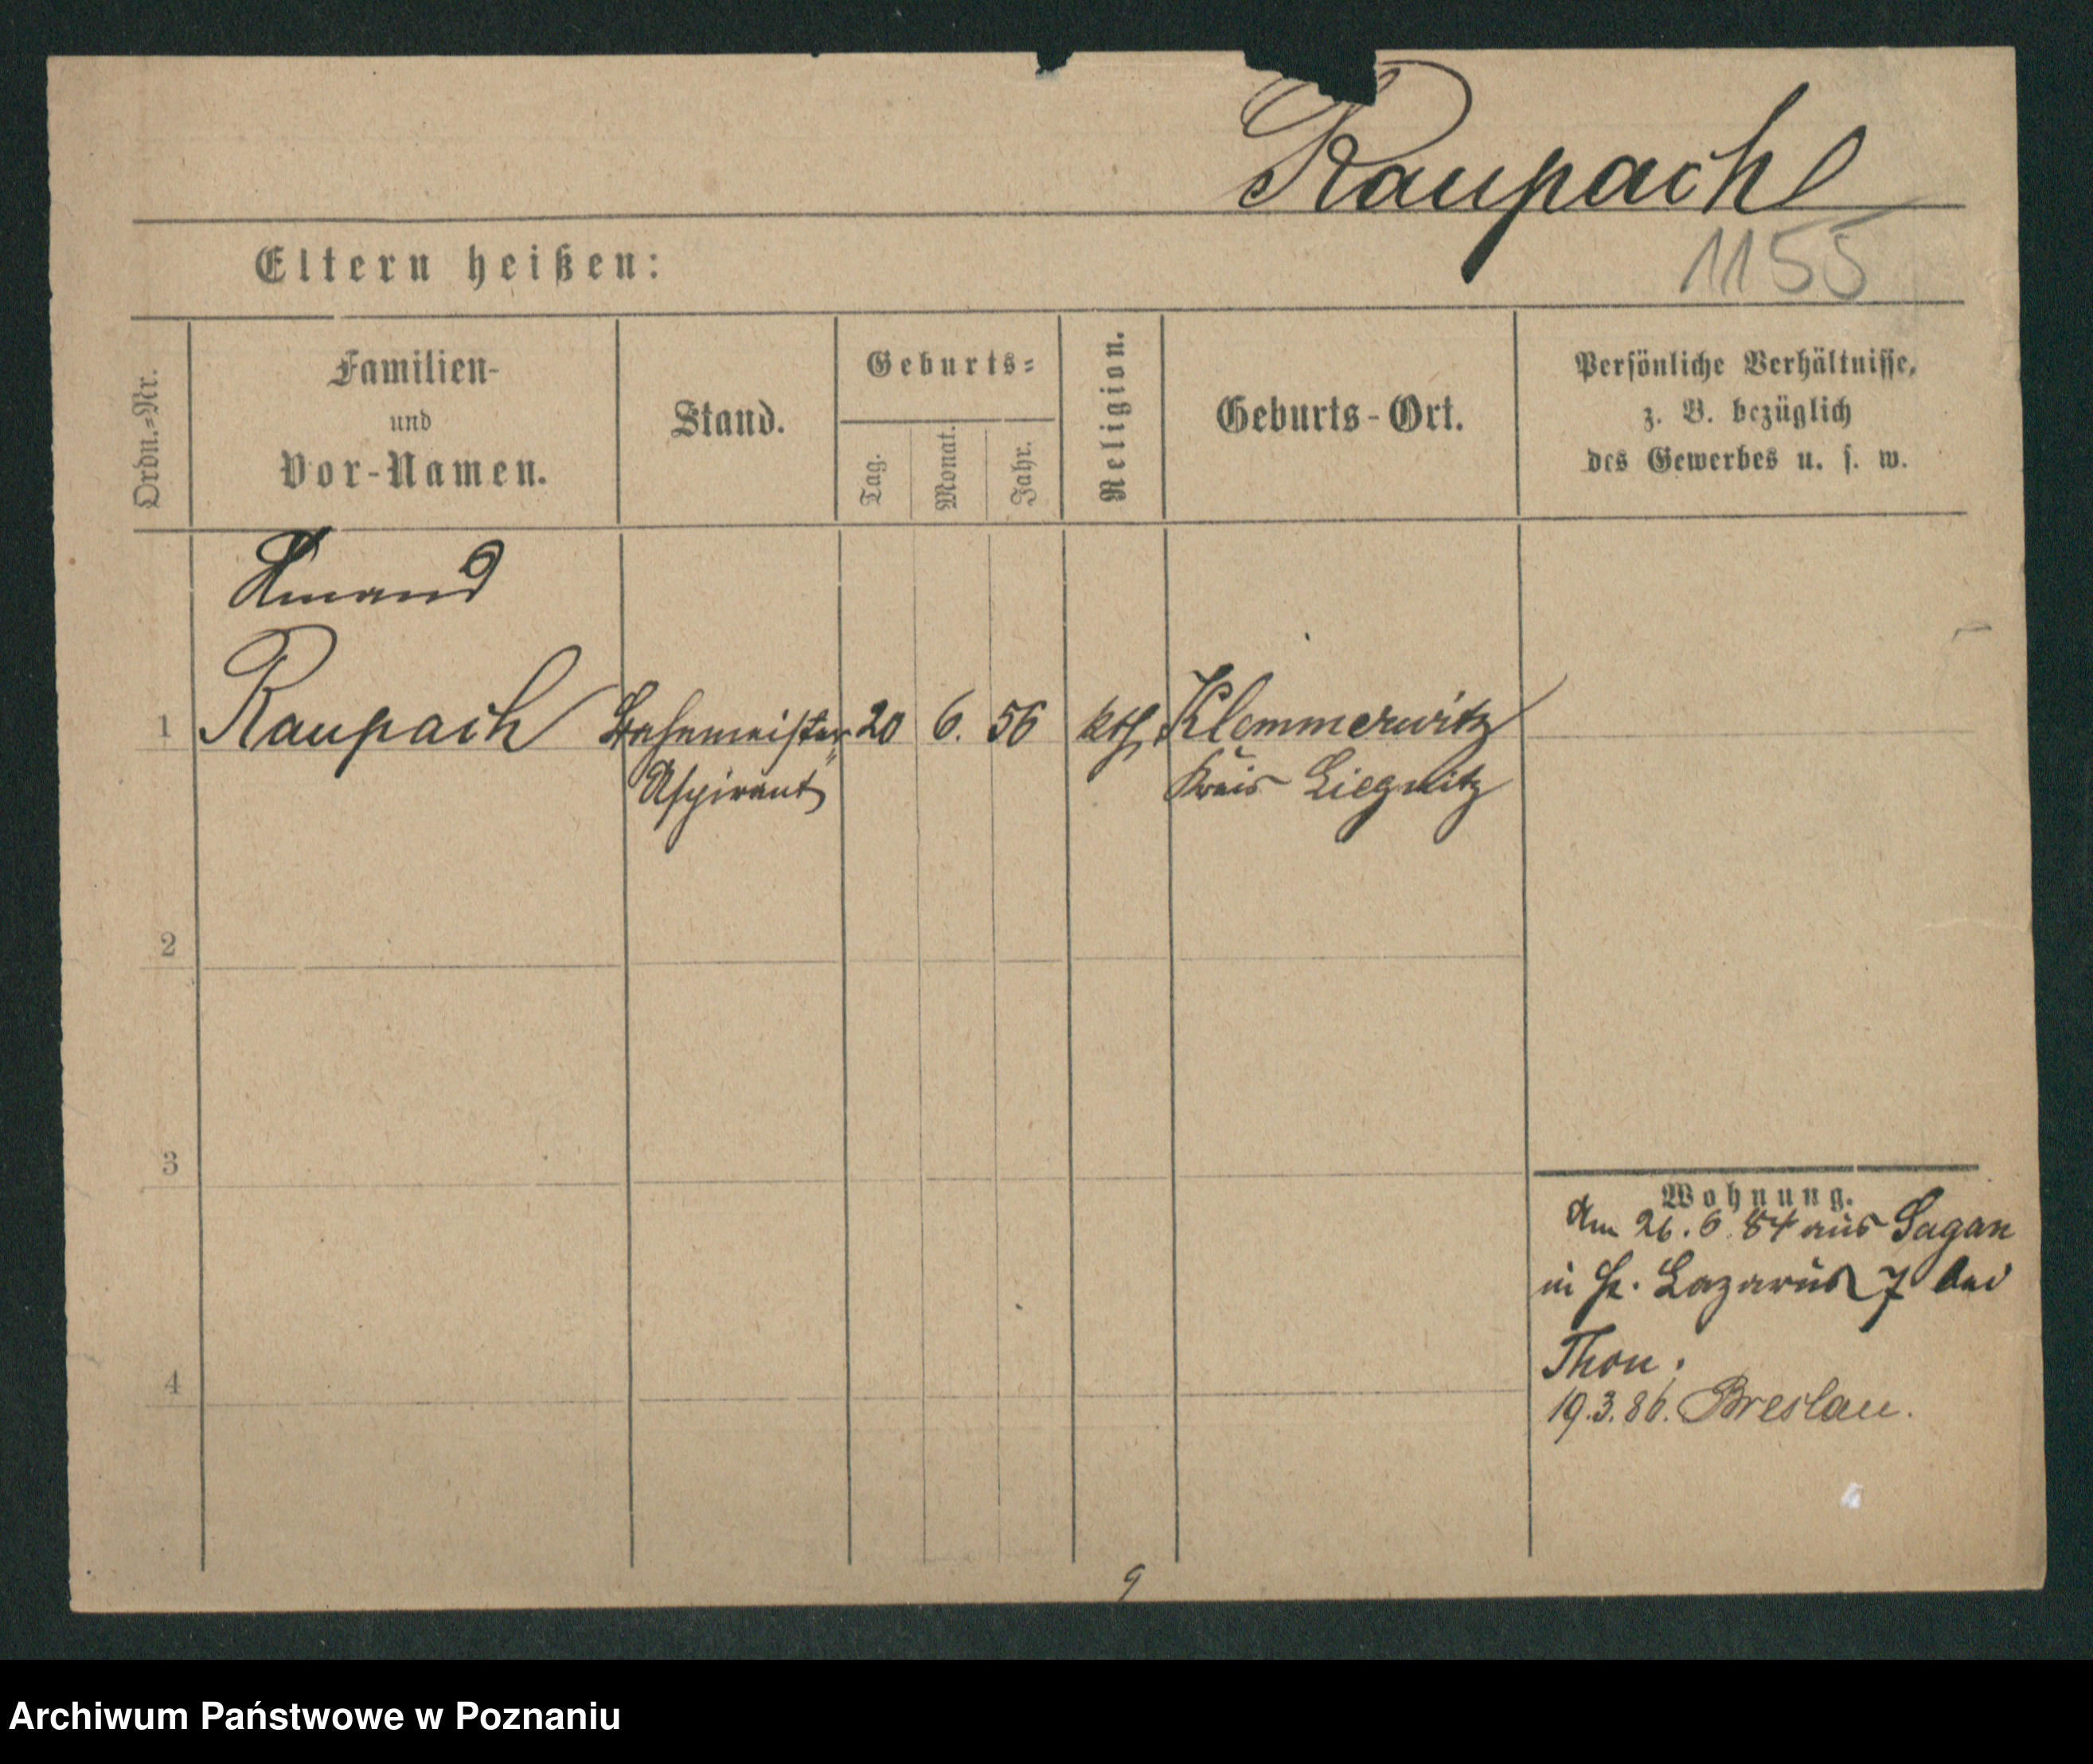 Raupach
1155
Eltern heißen:
Ordn.-Nr.
Familien-
und
Vor-Namen.
Stand.
Geburts-
Tag.
Monat.
Jahr.
Religion.
Geburts-Ort.
Persönliche Verhältnisse,
z. B. bezüglich
des Gewerbes u. s. w.
Amand
1 Raupach Bahnmeister 20 6. 56 kth Klemmerwitz
Aspirant Kreis Liegnitz
2
3
Wohnung.
Am 26. 6. 84 aus Sagan
in St. Lazarus 7 bei
Thon.
4
19.3.86. Breslau.
9
Archiwum Państwowe w Poznaniu